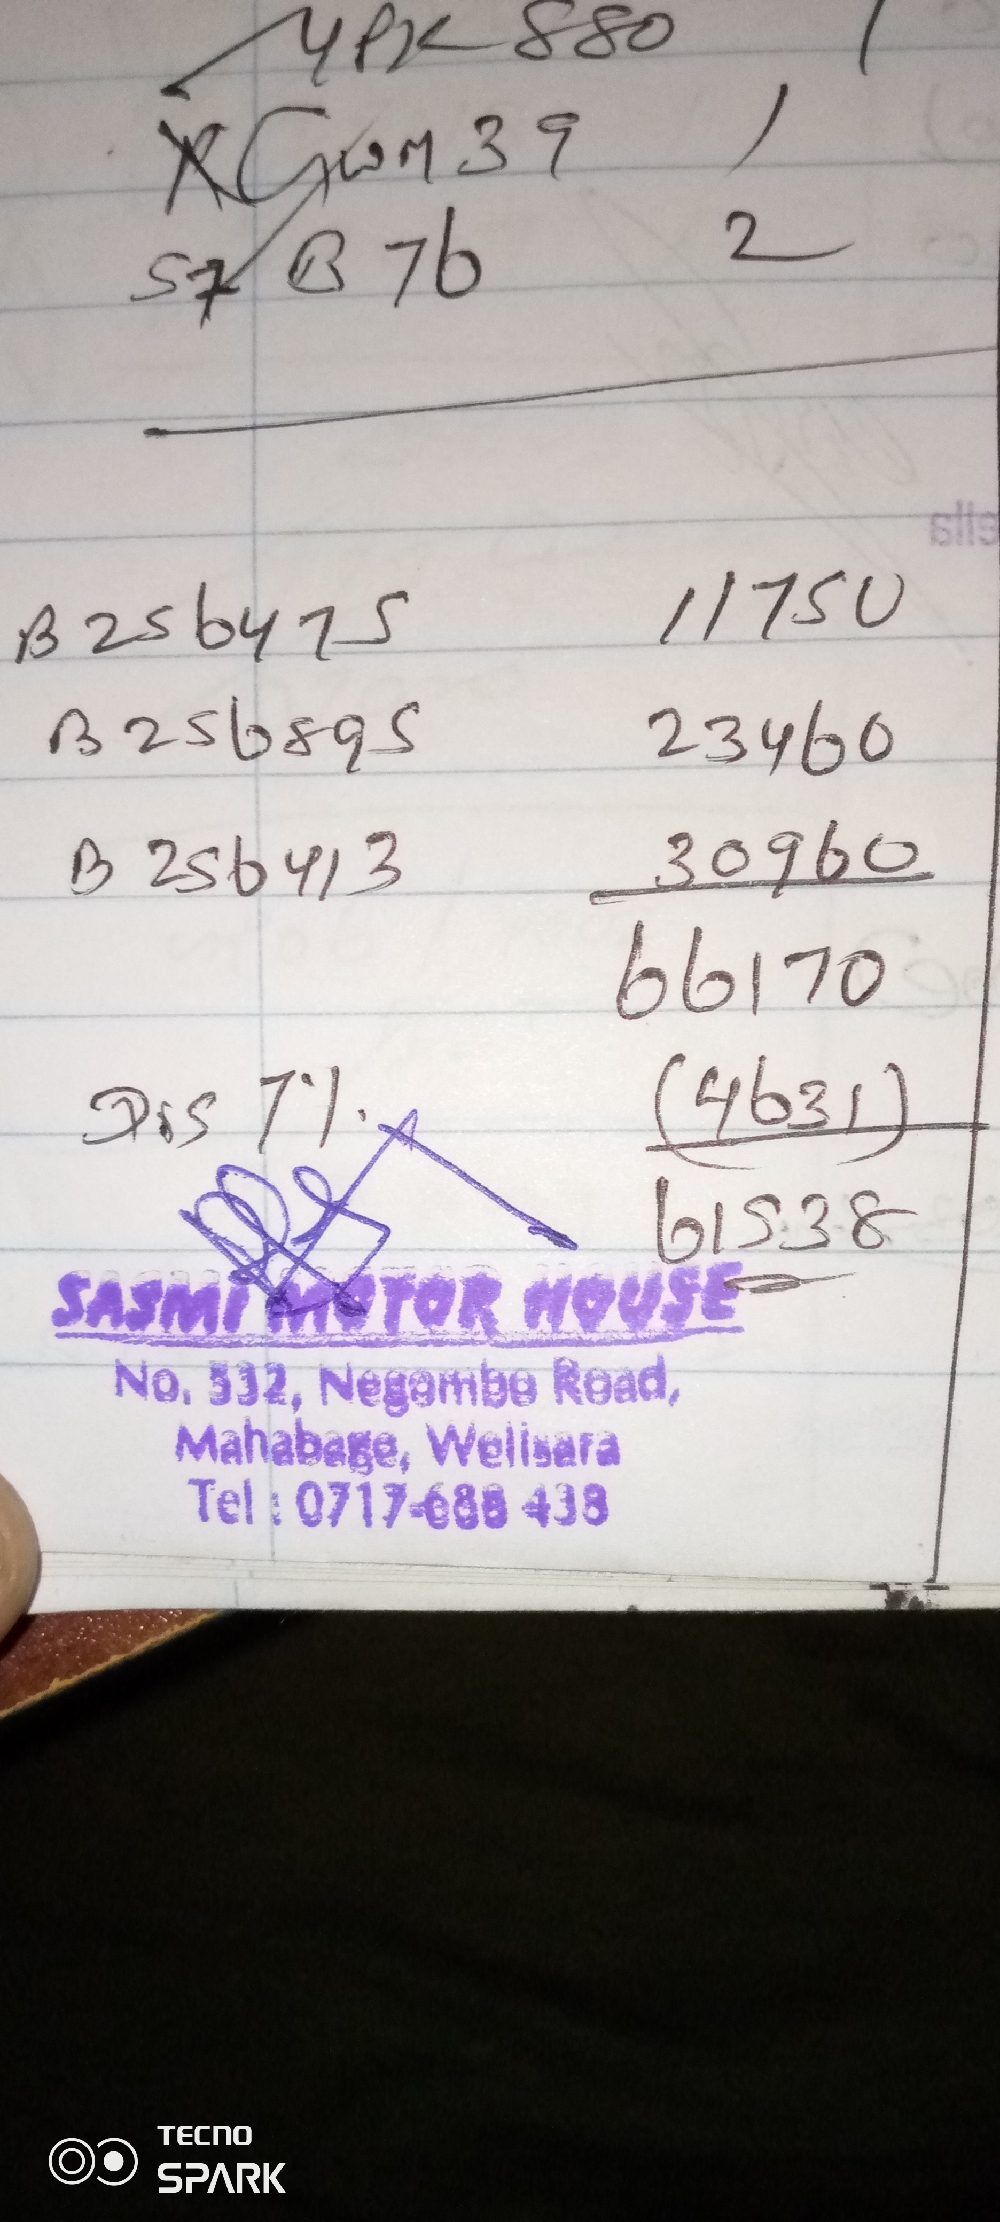 4PK 880 1
GWM39 1
57 B 76 2
ella
B 256475 11750
B 256895 23460
B 256413 30960
66170
Dis 7% (4631)
61538
SASMI MOTOR HOUSE
No. 532, Negombo Road,
Mahabage, Welisara
Tel : 0717-688 438
TECNO
SPARK